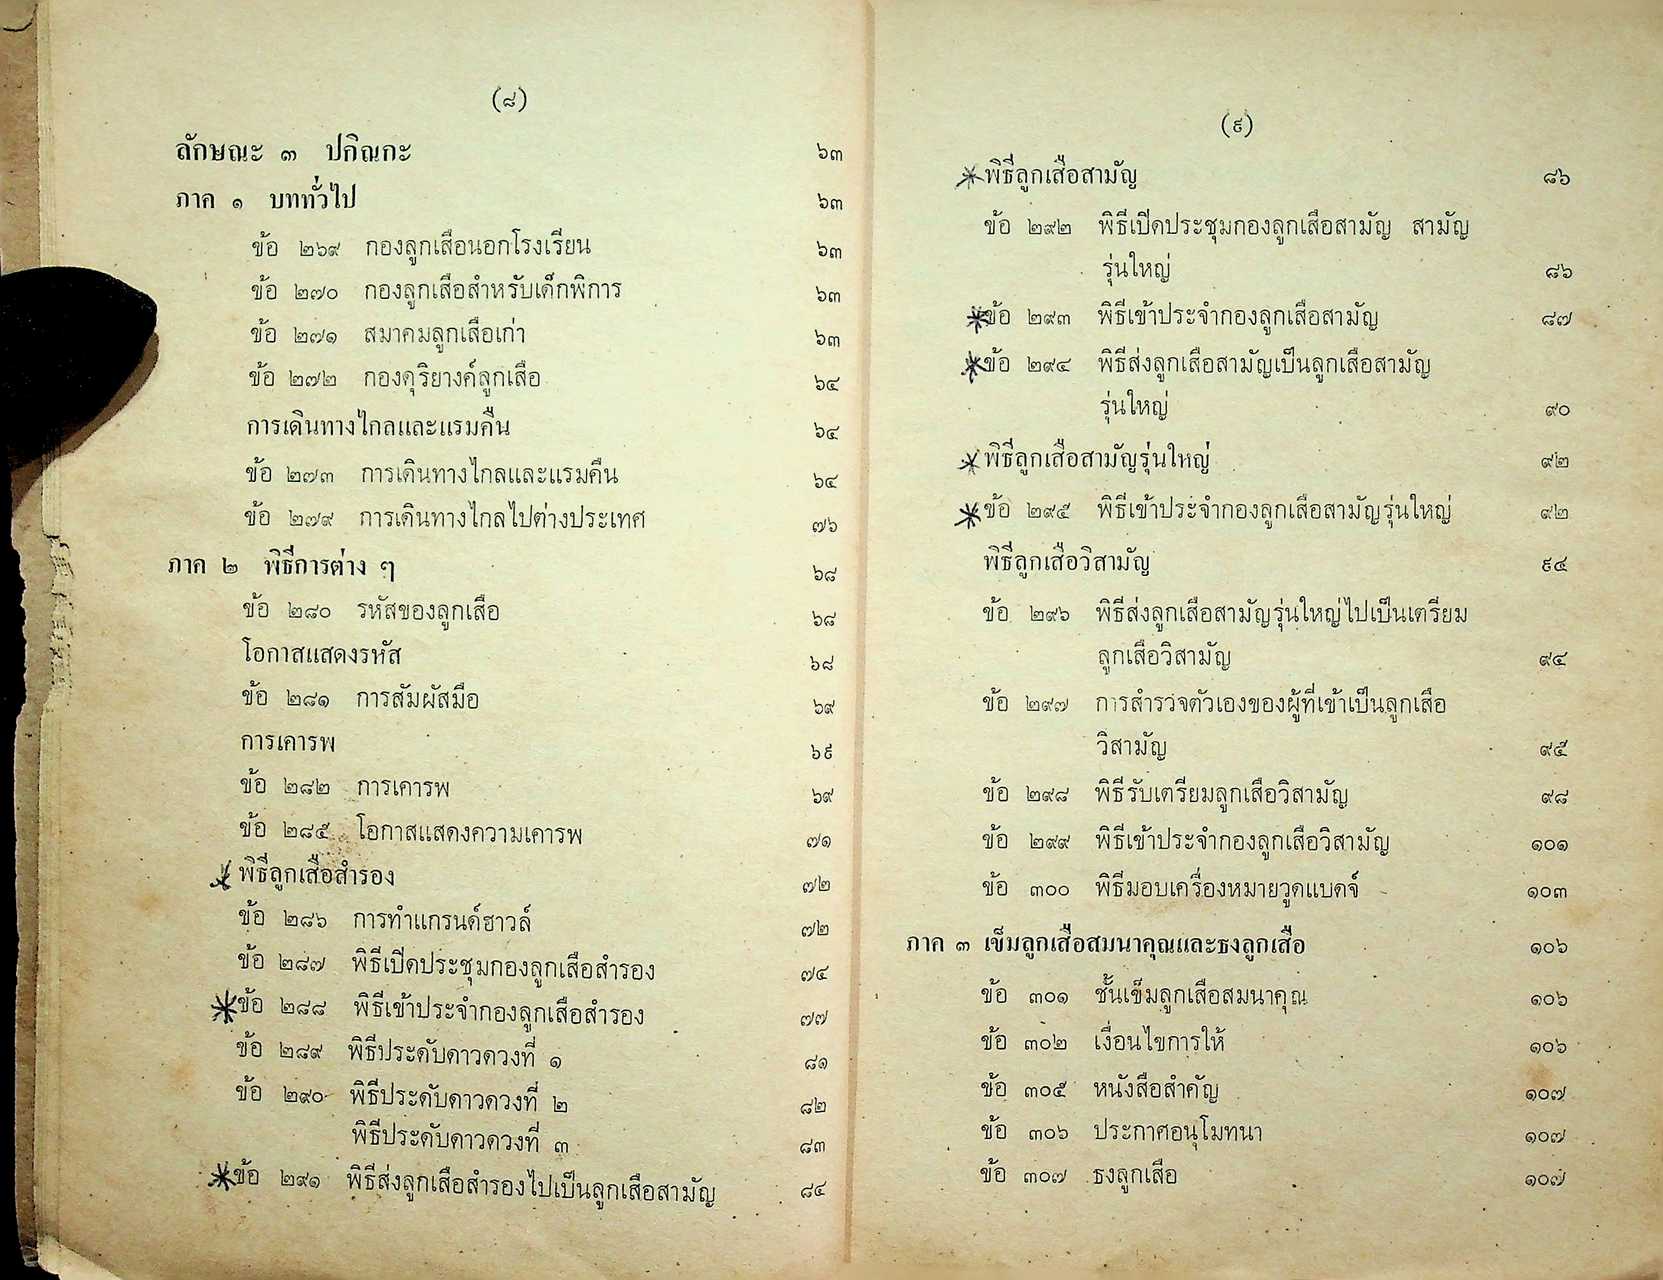 (๘)
ลักษณะ ๓ ปกิณกะ ๖๓
ภาค ๑ บททั่วไป ๖๓
ข้อ ๒๖๙ กองลูกเสือนอกโรงเรียน ๖๓
ข้อ ๒๗๐ กองลูกเสือสำหรับเด็กพิการ ๖๓
ข้อ ๒๗๑ สมาคมลูกเสือเก่า ๖๓
ข้อ ๒๗๒ กองดุริยางค์ลูกเสือ ๖๔
การเดินทางไกลและแรมคืน ๖๔
ข้อ ๒๗๓ การเดินทางไกลและแรมคืน ๖๔
ข้อ ๒๗๙ การเดินทางไกลไปต่างประเทศ ๗๖
ภาค ๒ พิธีการต่าง ๆ ๖๘
ข้อ ๒๘๐ รหัสของลูกเสือ ๖๘
โอกาสแสดงรหัส ๖๘
ข้อ ๒๘๑ การสัมผัสมือ ๖๙
การเคารพ ๖๙
ข้อ ๒๘๒ การเคารพ ๖๙
ข้อ ๒๘๕ โอกาสแสดงความเคารพ ๗๑
พิธีลูกเสือสำรอง ๗๒
ข้อ ๒๘๖ การทำแกรนด์ฮาวล์ ๗๒
ข้อ ๒๘๗ พิธีเปิดประชุมกองลูกเสือสำรอง ๗๔
ข้อ ๒๘๘ พิธีเข้าประจำกองลูกเสือสำรอง ๗๗
ข้อ ๒๘๙ พิธีประดับดาวดวงที่ ๑ ๘๑
ข้อ ๒๙๐ พิธีประดับดาวดวงที่ ๒ ๘๒
พิธีประดับดาวดวงที่ ๓ ๘๓
ข้อ ๒๙๑ พิธีส่งลูกเสือสำรองไปเป็นลูกเสือสามัญ ๘๔
(๙)
พิธีลูกเสือสามัญ ๘๖
ข้อ ๒๙๒ พิธีเปิดประชุมกองลูกเสือสามัญ สามัญ
รุ่นใหญ่ ๘๖
ข้อ ๒๙๓ พิธีเข้าประจำกองลูกเสือสามัญ ๘๗
ข้อ ๒๙๔ พิธีส่งลูกเสือสามัญเป็นลูกเสือสามัญ
รุ่นใหญ่ ๙๐
พิธีลูกเสือสามัญรุ่นใหญ่ ๙๒
ข้อ ๒๙๕ พิธีเข้าประจำกองลูกเสือสามัญรุ่นใหญ่ ๙๒
พิธีลูกเสือวิสามัญ ๙๔
ข้อ ๒๙๖ พิธีส่งลูกเสือสามัญรุ่นใหญ่ไปเป็นเตรียม
ลูกเสือวิสามัญ ๙๔
ข้อ ๒๙๗ การสำรวจตัวเองของผู้ที่เข้าเป็นลูกเสือ
วิสามัญ ๙๕
ข้อ ๒๙๘ พิธีรับเตรียมลูกเสือวิสามัญ ๙๘
ข้อ ๒๙๙ พิธีเข้าประจำกองลูกเสือวิสามัญ ๑๐๑
ข้อ ๓๐๐ พิธีมอบเครื่องหมายวูดแบดจ์ ๑๐๓
ภาค ๓ เข็มลูกเสือสมนาคุณและธงลูกเสือ ๑๐๖
ข้อ ๓๐๑ ชั้นเข็มลูกเสือสมนาคุณ ๑๐๖
ข้อ ๓๐๒ เงื่อนไขการให้ ๑๐๖
ข้อ ๓๐๕ หนังสือสำคัญ ๑๐๗
ข้อ ๓๐๖ ประกาศอนุโมทนา ๑๐๗
ข้อ ๓๐๗ ธงลูกเสือ ๑๐๗